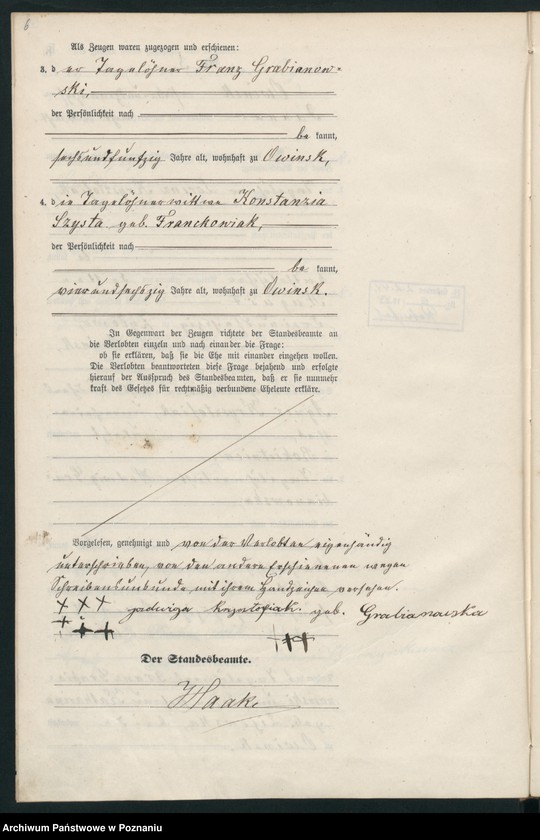 6
Als Zeugen waren zugezogen und erschienen:
3. der Tagelöhner Franz Grabianow=
ski,
der Persönlichkeit nach
be kannt,
sechsundfunfzig Jahre alt, wohnhaft zu Owinsk,
4. die Tagelöhnerwittwe Konstanzia
Szysta geb. Franckowiak,
der Persönlichkeit nach
be kannt,
vierundsechszig Jahre alt, wohnhaft zu Owinsk.
In Gegenwart der Zeugen richtete der Standesbeamte an
die Verlobten einzeln und nach einander die Frage:
ob sie erklären, daß sie die Ehe mit einander eingehen wollen.
Die Verlobten beantworteten diese Frage bejahend und erfolgte
hierauf der Ausspruch des Standesbeamten, daß er sie nunmehr
kraft des Gesetzes für rechtmäßig verbundene Eheleute erkläre.
Vorgelesen, genehmigt und von der Verlobten eigenhändig
unterschrieben, von den andere Erschienenen wegen
Schreibensunkunde mit ihrem Handzeichen versehen.
+++ Jadwiga geb. Grabianowska
+++ +++
Der Standesbeamte.
Haake
Archiwum Państwowe w Poznaniu